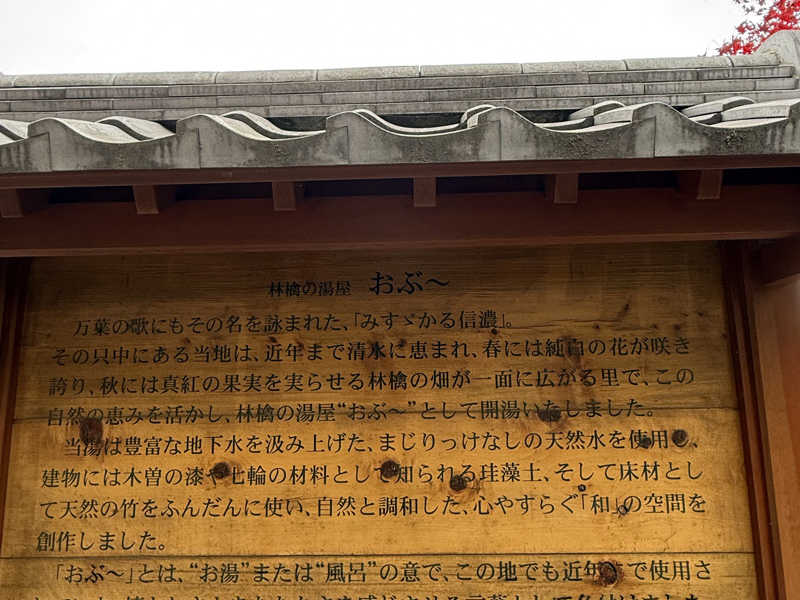 林檎の湯屋 おぶ～
万葉の歌にもその名を詠まれた、「みすゞかる信濃」。
その只中にある当地は、近年まで清水に恵まれ、春には純白の花が咲き
誇り、秋には真紅の果実を実らせる林檎の畑が一面に広がる里で、この
自然の恵みを活かし、林檎の湯屋“おぶ～”として開湯いたしました。
当湯は豊富な地下水を汲み上げた、まじりっけなしの天然水を使用し、
建物には木曽の漆や七輪の材料として知られる珪藻土、そして床材とし
て天然の竹をふんだんに使い、自然と調和した、心やすらぐ「和」の空間を
創作しました。
「おぶ～」とは、“お湯”または“風呂”の意で、この地でも近年まで使用さ